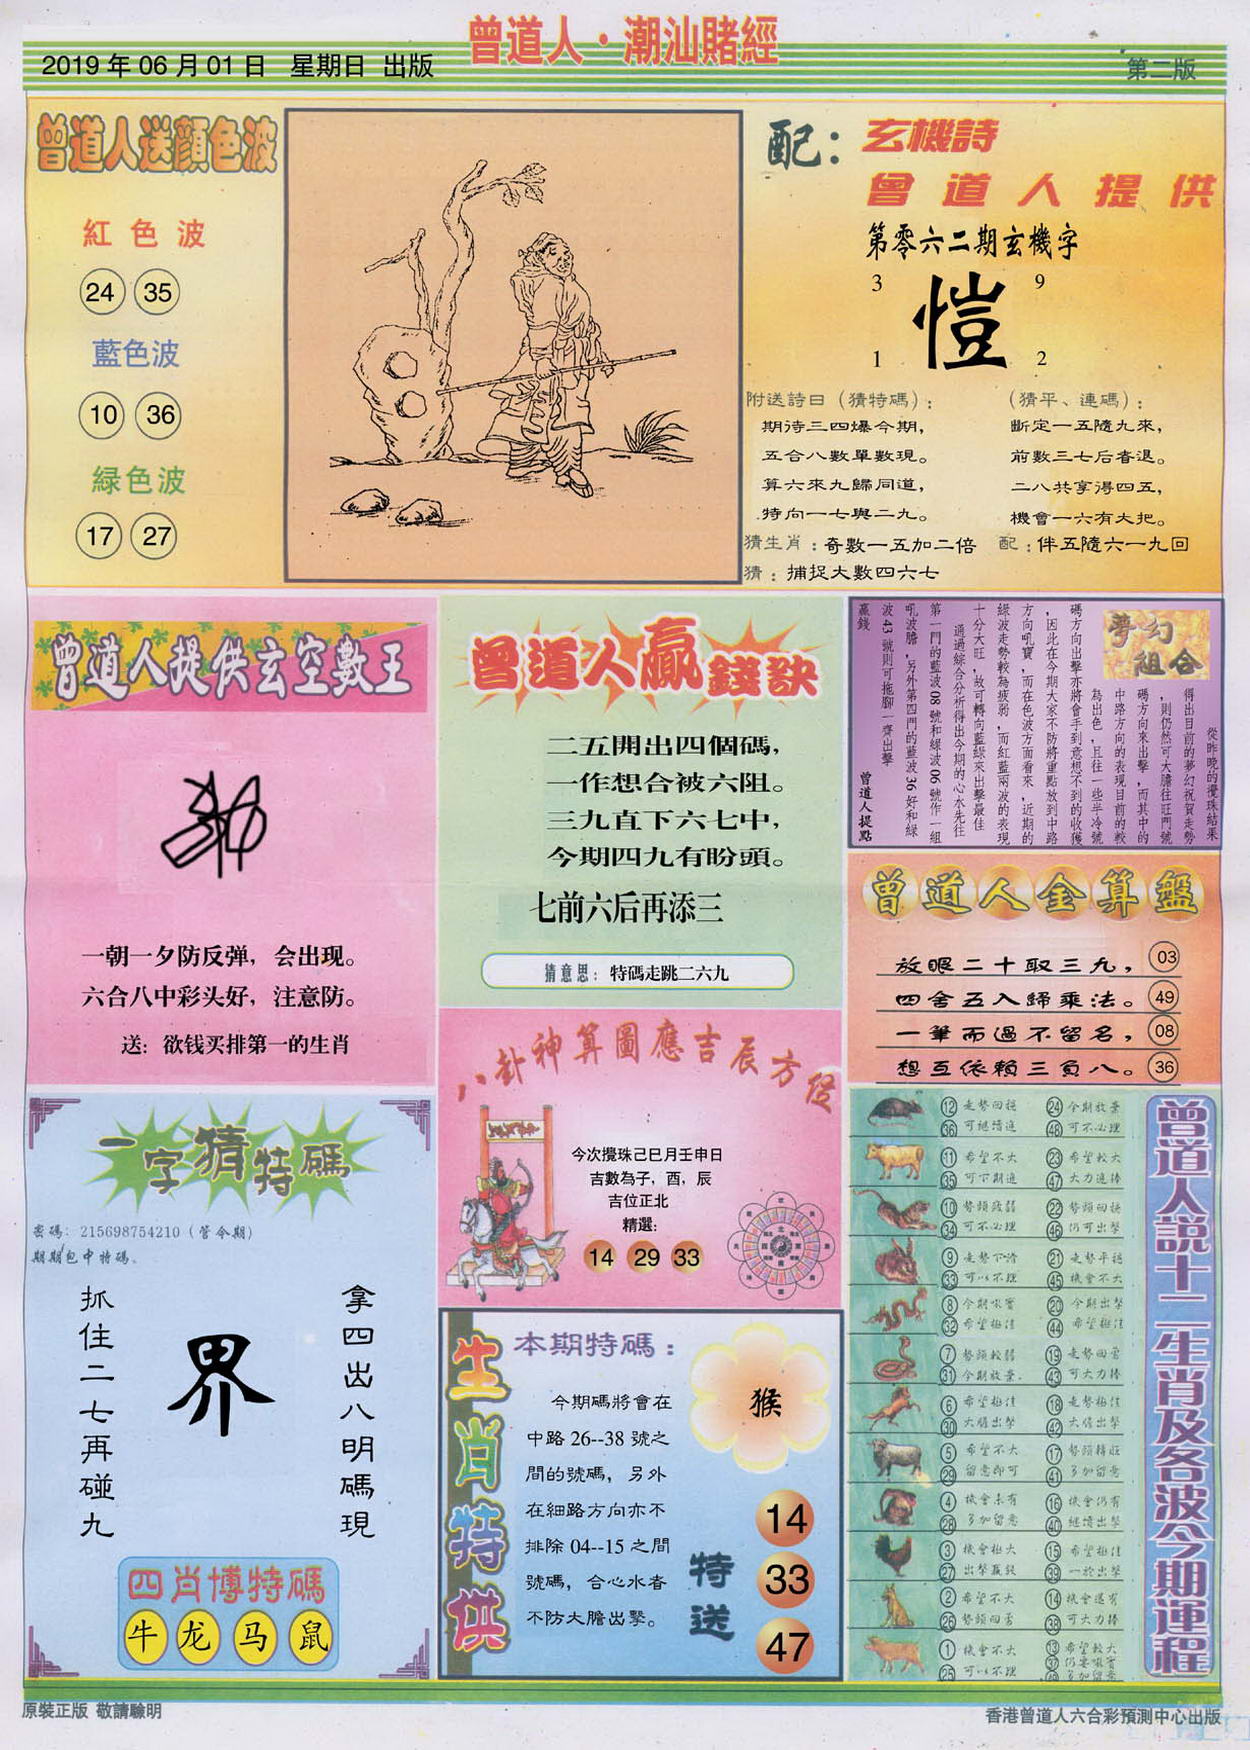 曾道人·潮汕賭經
2019 年 06 月 01 日 星期日 出版
第二版
曾道人送顔色波
紅色波
24 35
藍色波
10 36
緑色波
17 27
配：玄機詩
曾道人提供
第零六二期玄機字
3 9
愷
1 2
附送詩曰（猜特碼）：
期待三四爆今期，
五合八數單數現。
算六來九歸同道，
特向一七與二九。
（猜平、連碼）：
斷定一五隨九來，
前數三七后者退。
二八共享得四五，
機會一六有大把。
猜生肖：奇數一五加二倍 配：伴五隨六一九回
猜：捕捉大數四六七
曾道人提供玄空數王
一朝一夕防反弹，会出现。
六合八中彩头好，注意防。
送：欲钱买排第一的生肖
曾道人贏錢訣
二五開出四個碼，
一作想合被六阻。
三九直下六七中，
今期四九有盼頭。
七前六后再添三
猜意思：特碼走跳二六九
夢幻組合
從昨晚的攪珠結果
得出目前的夢幻祝賀走勢
，則仍然可大膽往旺門號
碼方向來出擊，而其中的
中路方向的表現目前的較
為出色，且往一些半冷號
碼方向出擊亦將會手到意想不到的收獲
，因此在今期大家不防將重點放到中路
方向吼寶，而在色波方面看來，近期的
綠波走勢較為疲弱，而紅藍兩波的表現
十分大旺，故可轉向藍綠來出擊最佳
通過綜合分析得出今期的心水先往
第一門的藍波 08 號和綠波 06 號作一組
吼波膽，另外第四門的藍波 36 好和綠
波 43 號則可拖腳一齊出擊
贏錢 曾道人提點
曾道人金算盤
放眼二十取三九， 03
四舍五入歸乘法。 49
一筆而過不留名， 08
想互依賴三負八。 36
八卦神算圖應吉辰方位
今次攪珠己巳月壬申日
吉數為子，酉，辰
吉位正北
精選：
14 29 33
一字猜特碼
密碼：215698754210（管今期）
期期包中特碼。
拿四出八明碼現
界
抓住二七再碰九
四肖博特碼
牛 龙 马 鼠
生肖特供
本期特碼：
猴
今期碼將會在
中路 26--38 號之
間的號碼，另外
在細路方向亦不
排除 04--15 之間
號碼，合心水者
不防大膽出擊。
特送
14
33
47
曾道人説十二生肖及各波今期運程
12 走勢回穩 24 今期放棄
36 可繼續追 48 可不必理
11 希望不大 23 希望較大
35 可下期追 47 大力追捧
10 勢頭疲弱 22 勢頭回穩
34 可不必理 46 仍可出擊
9 走勢下滑 21 走勢平穩
33 可以不理 45 機會不大
8 今期吼實 20 今期出擊
32 希望極佳 44 希望極佳
7 勢頭較弱 19 走勢回雷
31 今期放棄 43 可大力捧
6 希望極佳 18 走勢極佳
30 大膽出擊 42 大膽出擊
5 希望不大 17 勢頭轉旺
29 留意即可 41 多加留意
4 機會未有 16 機會仍有
28 多加留意 40 繼續出擊
3 機會極大 15 希望極佳
27 出擊贏錢 39 一於出擊
2 希望不大 14 機會還有
26 勢頭回落 38 可大力捧
1 機會不大 13 希望較大
25 可以不理 37 仍要吼實
49 多加留意
原裝正版 敬請驗明
香港曾道人六合彩預測中心出版